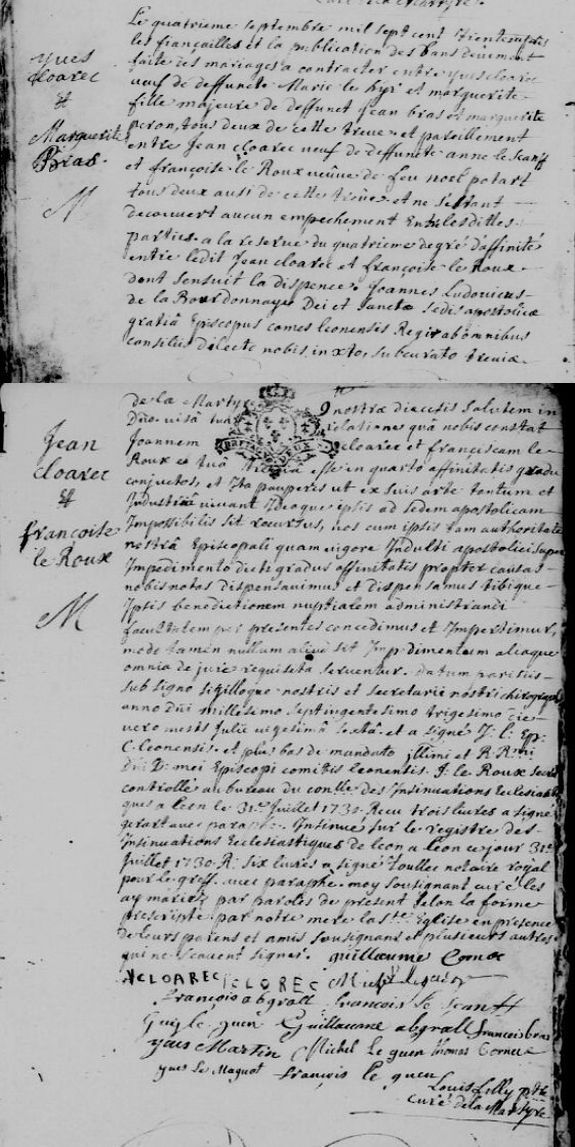 Le quatrieme septembre mil sept cent trente apres
les fiançailles et la publication des bans deüement
faite des mariages a contracter entre yves cloarec
veuf de deffuncte Marie le hyr et marguerite
fille majeure de deffunct jean bras et marguerite
peron, tous deux de cette treve et pareillement
entre Jean cloarec veuf de deffuncte anne le scanff
et françoise le Roux veuve de feu noel potart
tous deux aussi de cette treve, et ne s'estant
decouvert aucun empechement Entre lesdittes
parties a la reserve du quatrieme degré d'affinité
entre ledit Jean cloarec et françoise le Roux
dont sensuit la dispence. Joannes Ludovicus
de la Bourdonnaye Dei et sanctæ sedis apostolicæ
gratiâ Episcopus comes leonensis Regi ab omnibus
consiliis dilecto nobis in xto, subcurato treviæ
yves
cloarec
et
Marguerite
Bras.
M
de la Martyre nostræ diæcesis salutem in
Dno visâ tuâ relatione quâ nobis constat
Joannem cloarec et franciscam le
Roux ex tuâ treviâ esse in quarto affinitatis gradu
conjuctos, et Ita pauperes ut ex suis arte tantum et
Industriâ vivant Ideoque ipsis ad sedem apostolicam
Impossibilis sit recursus, nos cum ipsis tam authoritate
nostrâ Episcopali quam vigore Indulti apostolici super
Impedimento dicti gradus affinitatis propter causas
nobis notas dispensavimus et dispensamus tibique
Ipsis benedictionem nuptialem administrandi
facultatem per præsentes concedimus et Impertimur,
modo tamen nullum aliud sit Impedimentum aliaque
omnia de jure requisita serventur. Datum parisiis
sub signo sigilloque nostris et secretarii nostri chirographo
anno dni millesimo septingentesimo trigesimo die
vero mensis Julii vigesimâ sextâ. et a signé J. l. Ep.
C. leonensis. et plus bas de mandato illmi et R. Rmi
Dni D. mei Episcopi comitis leonensis. J. le Roux secret
controllé au bureau du conlle des Insinuations Eclesiasti
ques a leon le 31e Juillet 1730. Recu trois livres a signé
avec paraphe. Insinué sur le registre des
Insinuations Ecclesiastiques de leon a leon ce jour 31e
Juillet 1730. R. six livres a signé toullec notaire royal
pour le greff. avec paraphe. moy sousignant curé les
ay mariez par paroles de present selon la forme
prescripte par notre mere la Ste Eglise en presence
de leurs parens et amis sousignans et plusieurs autres
qui ne scauent signer. guillaume Cornec
Jean
cloarec
et
françoise
le Roux
M
YCLOAREC I CLOREC
François abgrall francois le scanff
Guillaume abgrall francois bras
yves Martin Michel Le guen thomas Cornec
yves Le Maguot François le guen
Louis Lilly ptre
curé de la Martyre